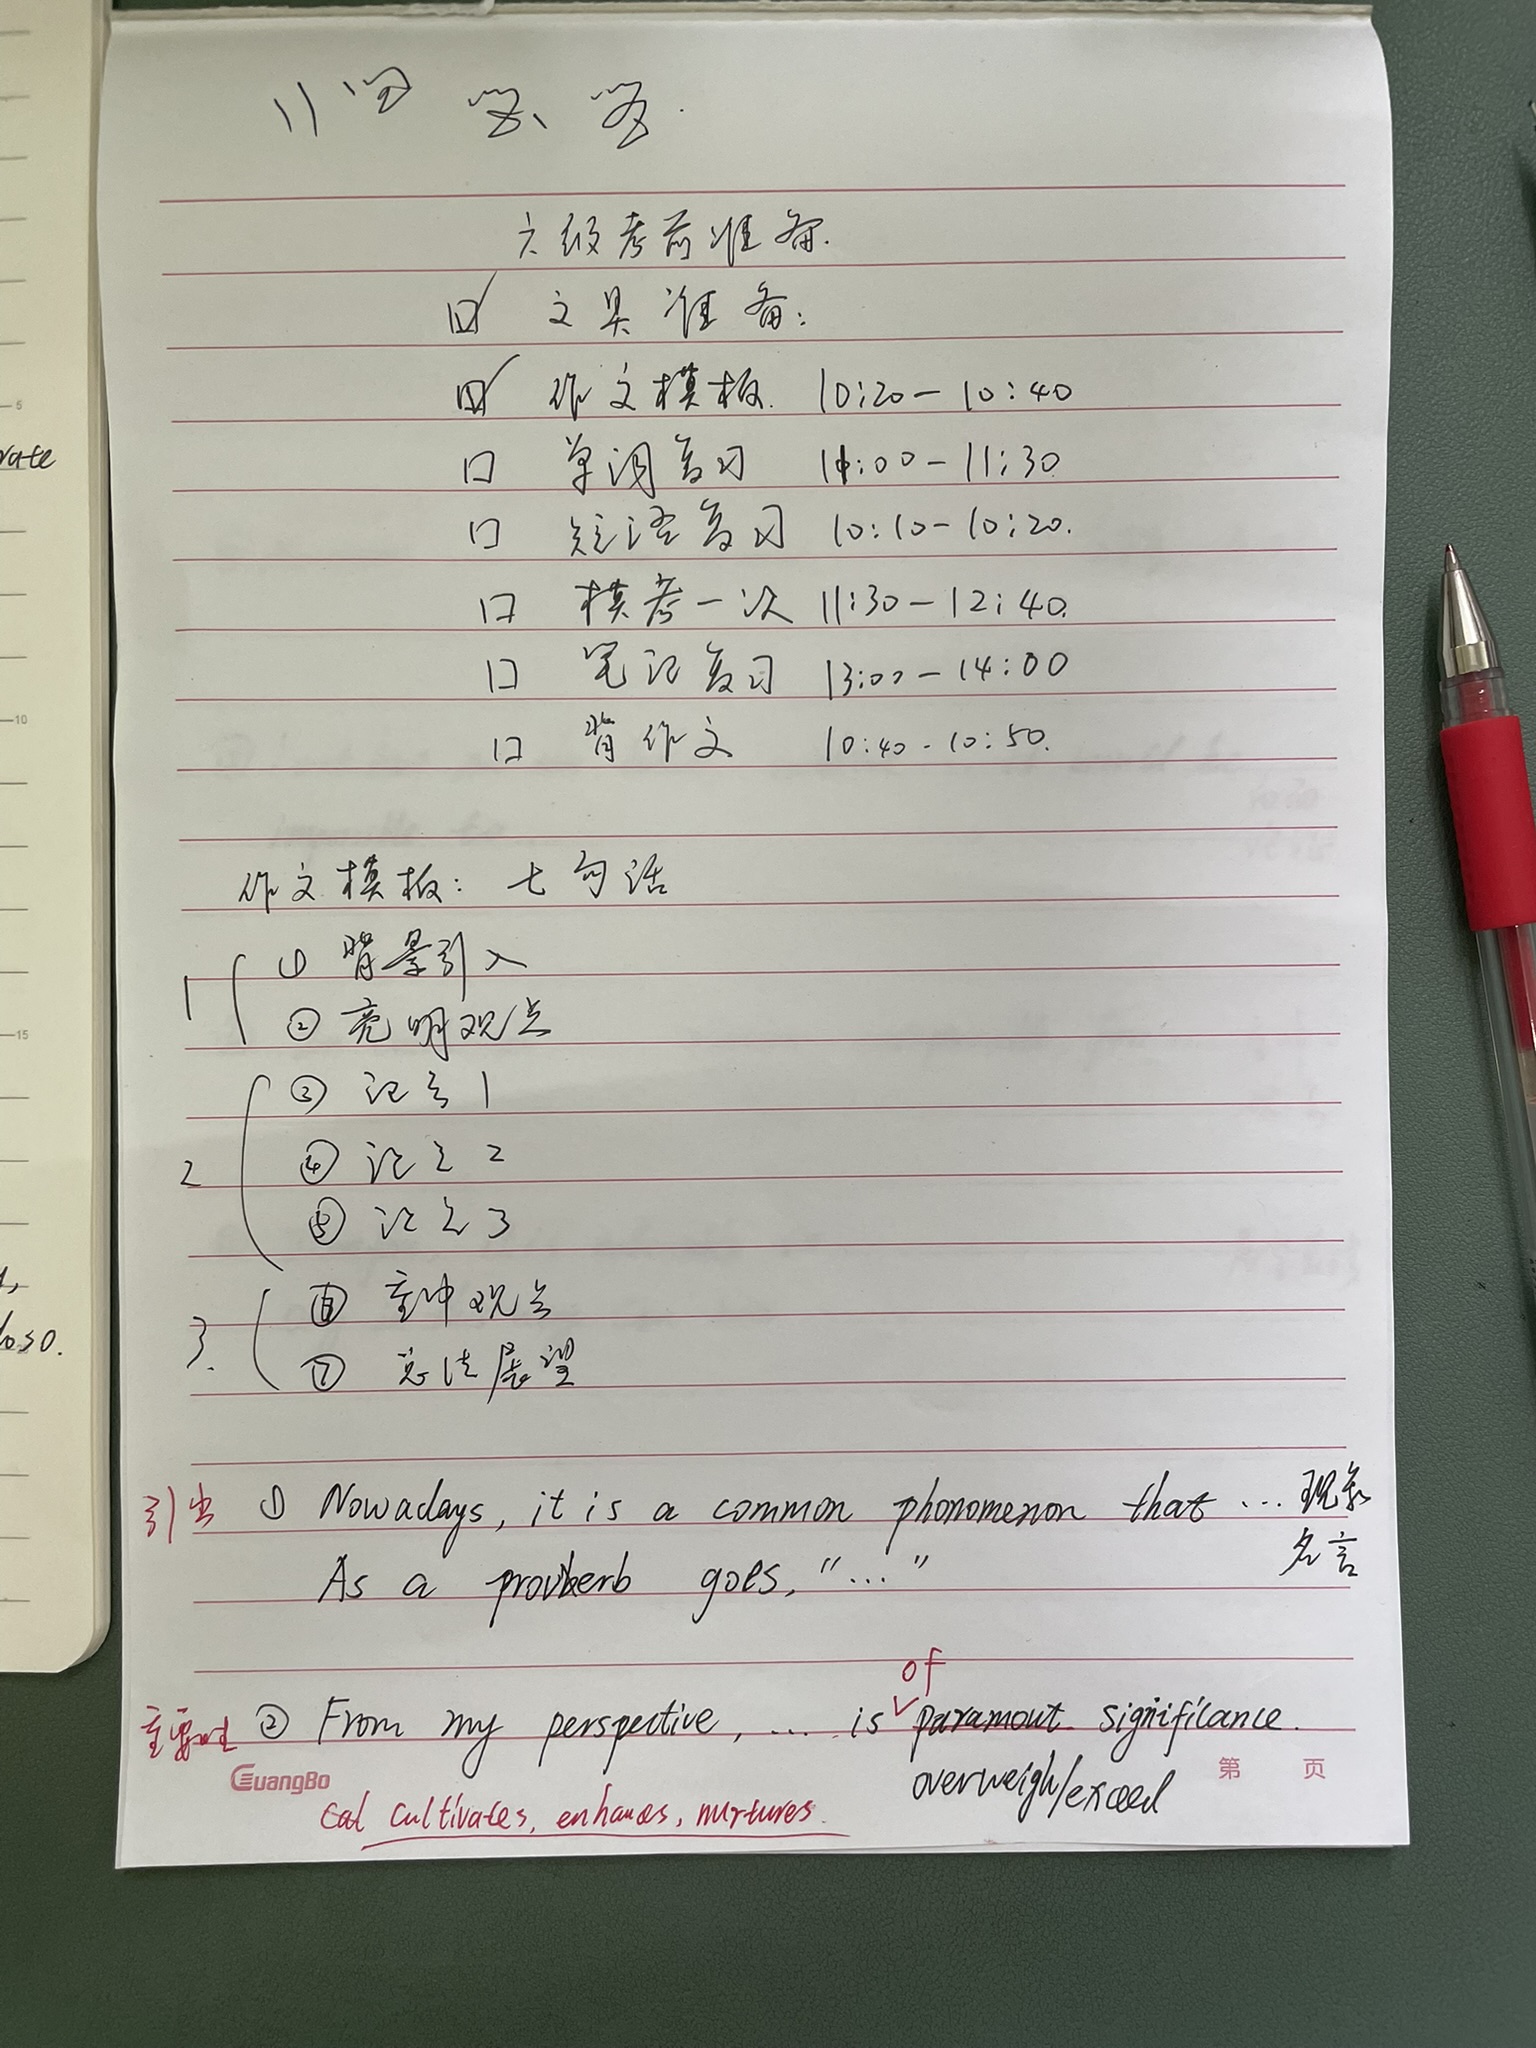 六级考前准备.
文具准备:
作文模板. 10:20-10:40
单词复习 11:00-11:30
短语复习 10:10-10:20.
模考一次 11:30-12:40.
笔记复习 13:00-14:00
背作文 10:40-10:50.
作文模板: 七句话
1 ① 背景引入
② 亮明观点
2 ③ 论点1
④ 论点2
⑤ 论点3
3. ⑥ 重申观点
⑦ 总结展望
引出 ① Nowadays, it is a common phonomenon that ... 现象
As a proverb goes, "..." 名言
of
重要性 ② From my perspective, ... is paramout significance.
overweigh/exceed
GuangBo 第 页
cultivates, enhances, nurtures.
rate
5
10
15